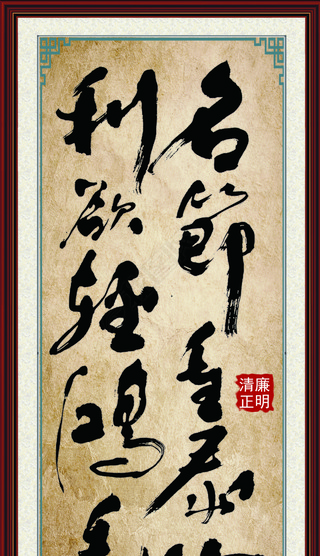 名節重泰
利欲輕鴻
廉明
清正